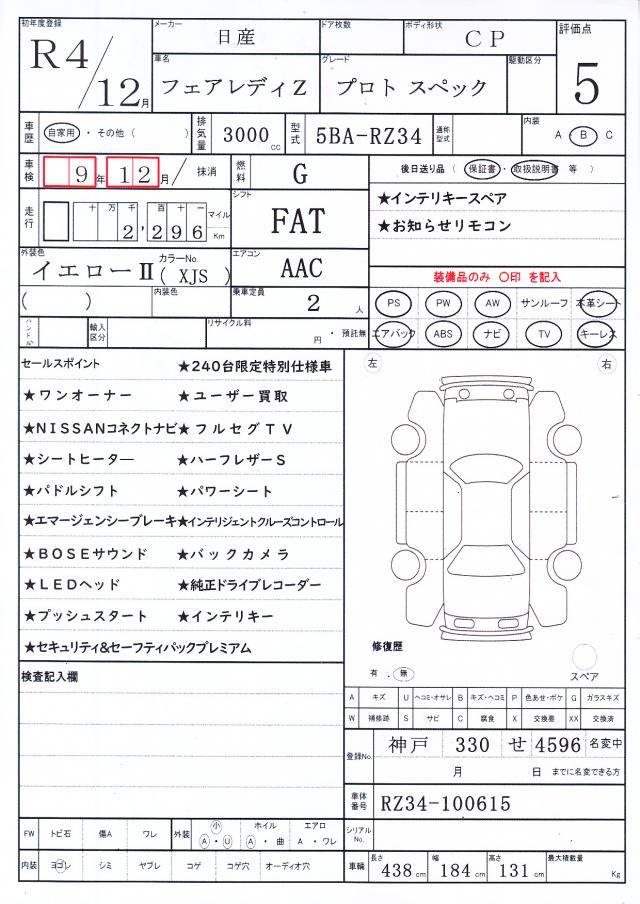 初年度登録 R4/12月
メーカー 日産
ドア枚数
ボディ形状 CP
評価点 5
車名 フェアレディZ
グレード プロト スペック
駆動区分
車歴 自家用 ・ その他 ( )
排気量 3000 cc
型式 5BA-RZ34
通称型式
内装 A ・ B ・ C
車検 9年 12月/ 抹消
燃料 G
後日送り品 ( 保証書 ・ 取扱説明書 等 )
★インテリキースペア
★お知らせリモコン
走行 十 万 千 百 十 一 マイル Km
2,296
シフト FAT
外装色 イエローⅡ
カラーNo. ( XJS )
エアコン AAC
装備品のみ 〇印 を記入
( )
内装色
乗車定員 2 人
PS PW AW サンルーフ 本革シート
ハンドル
輸入区分
リサイクル料 円 ・ 預託無
エアバック ABS ナビ TV キーレス
セールスポイント ★240台限定特別仕様車
★ワンオーナー ★ユーザー買取
★NISSANコネクトナビ★フルセグTV
★シートヒーター ★ハーフレザーS
★パドルシフト ★パワーシート
★エマージェンシーブレーキ★インテリジェントクルーズコントロール
★BOSEサウンド ★バックカメラ
★LEDヘッド ★純正ドライブレコーダー
★プッシュスタート ★インテリキー
★セキュリティ&セーフティパックプレミアム
左 右
修復歴
有 . 無
スペア
検査記入欄
A キズ U ヘコミ・オサレ B キズ・ヘコミ P 色あせ・ボケ G ガラスキズ
W 補修跡 S サビ C 腐食 X 交換要 XX 交換済
登録No. 神戸 330 せ 4596 名変中
月 日 までに名変できる方
車体番号 RZ34-100615
シリアルNo.
FW トビ石 傷A ワレ 外装 小 A ・ U ホイル A ・ 曲 エアロ A ・ ワレ
内装 ヨゴレ シミ ヤブレ コゲ コゲ穴 オーディオ穴
車輌 長さ 438 cm 幅 184 cm 高さ 131 cm 最大積載量 Kg